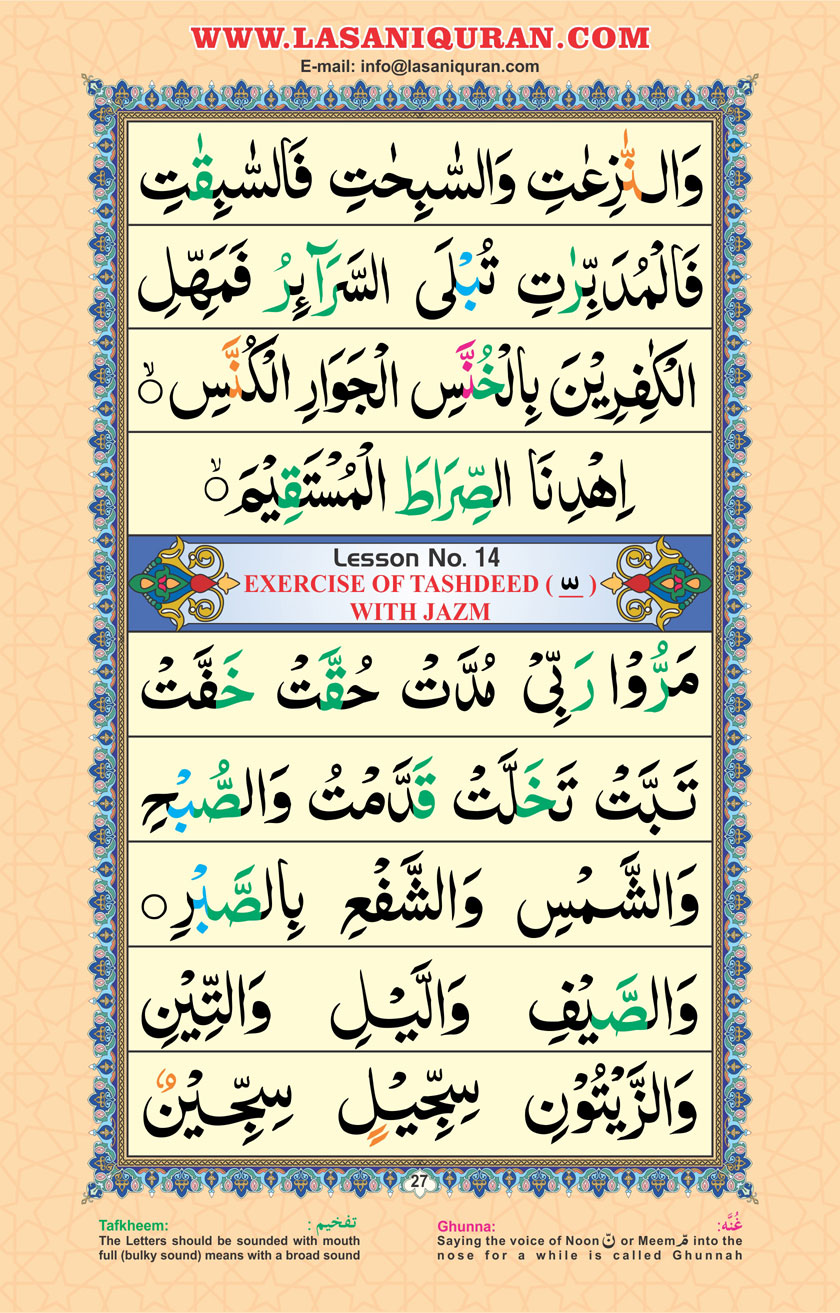 WWW.LASANIQURAN.COM
E-mail: info@lasaniquran.com
وَالنّٰزِعٰتِ وَالسّٰبِحٰتِ فَالسّٰبِقٰتِ
فَالْمُدَبِّرٰتِ تُبْلَى السَّرَآئِرُ فَمَهِّلِ
الْكٰفِرِيْنَ بِالْخُنَّسِ الْجَوَارِ الْكُنَّسِ ۙ
اِهْدِنَا الصِّرَاطَ الْمُسْتَقِيْمَ ۙ
Lesson No. 14
EXERCISE OF TASHDEED ( ّ )
WITH JAZM
مَرُّوْا رَبِّىْ مُدَّتْ حُقَّتْ خَفَّتْ
تَبَّتْ تَخَلَّتْ قَدَّمْتُ وَالصُّبْحِ
وَالشَّمْسِ وَالشَّفْعِ بِالصَّبْرِ ○
وَالصَّيْفِ وَالَّيْلِ وَالتِّيْنِ
وَالزَّيْتُوْنِ سِجِّيْلٍ سِجِّيْنٌ
27
Tafkheem: تفخیم :
The Letters should be sounded with mouth
full (bulky sound) means with a broad sound
Ghunna: غُنَّه:
Saying the voice of Noon نّ or Meem مّ into the
nose for a while is called Ghunnah